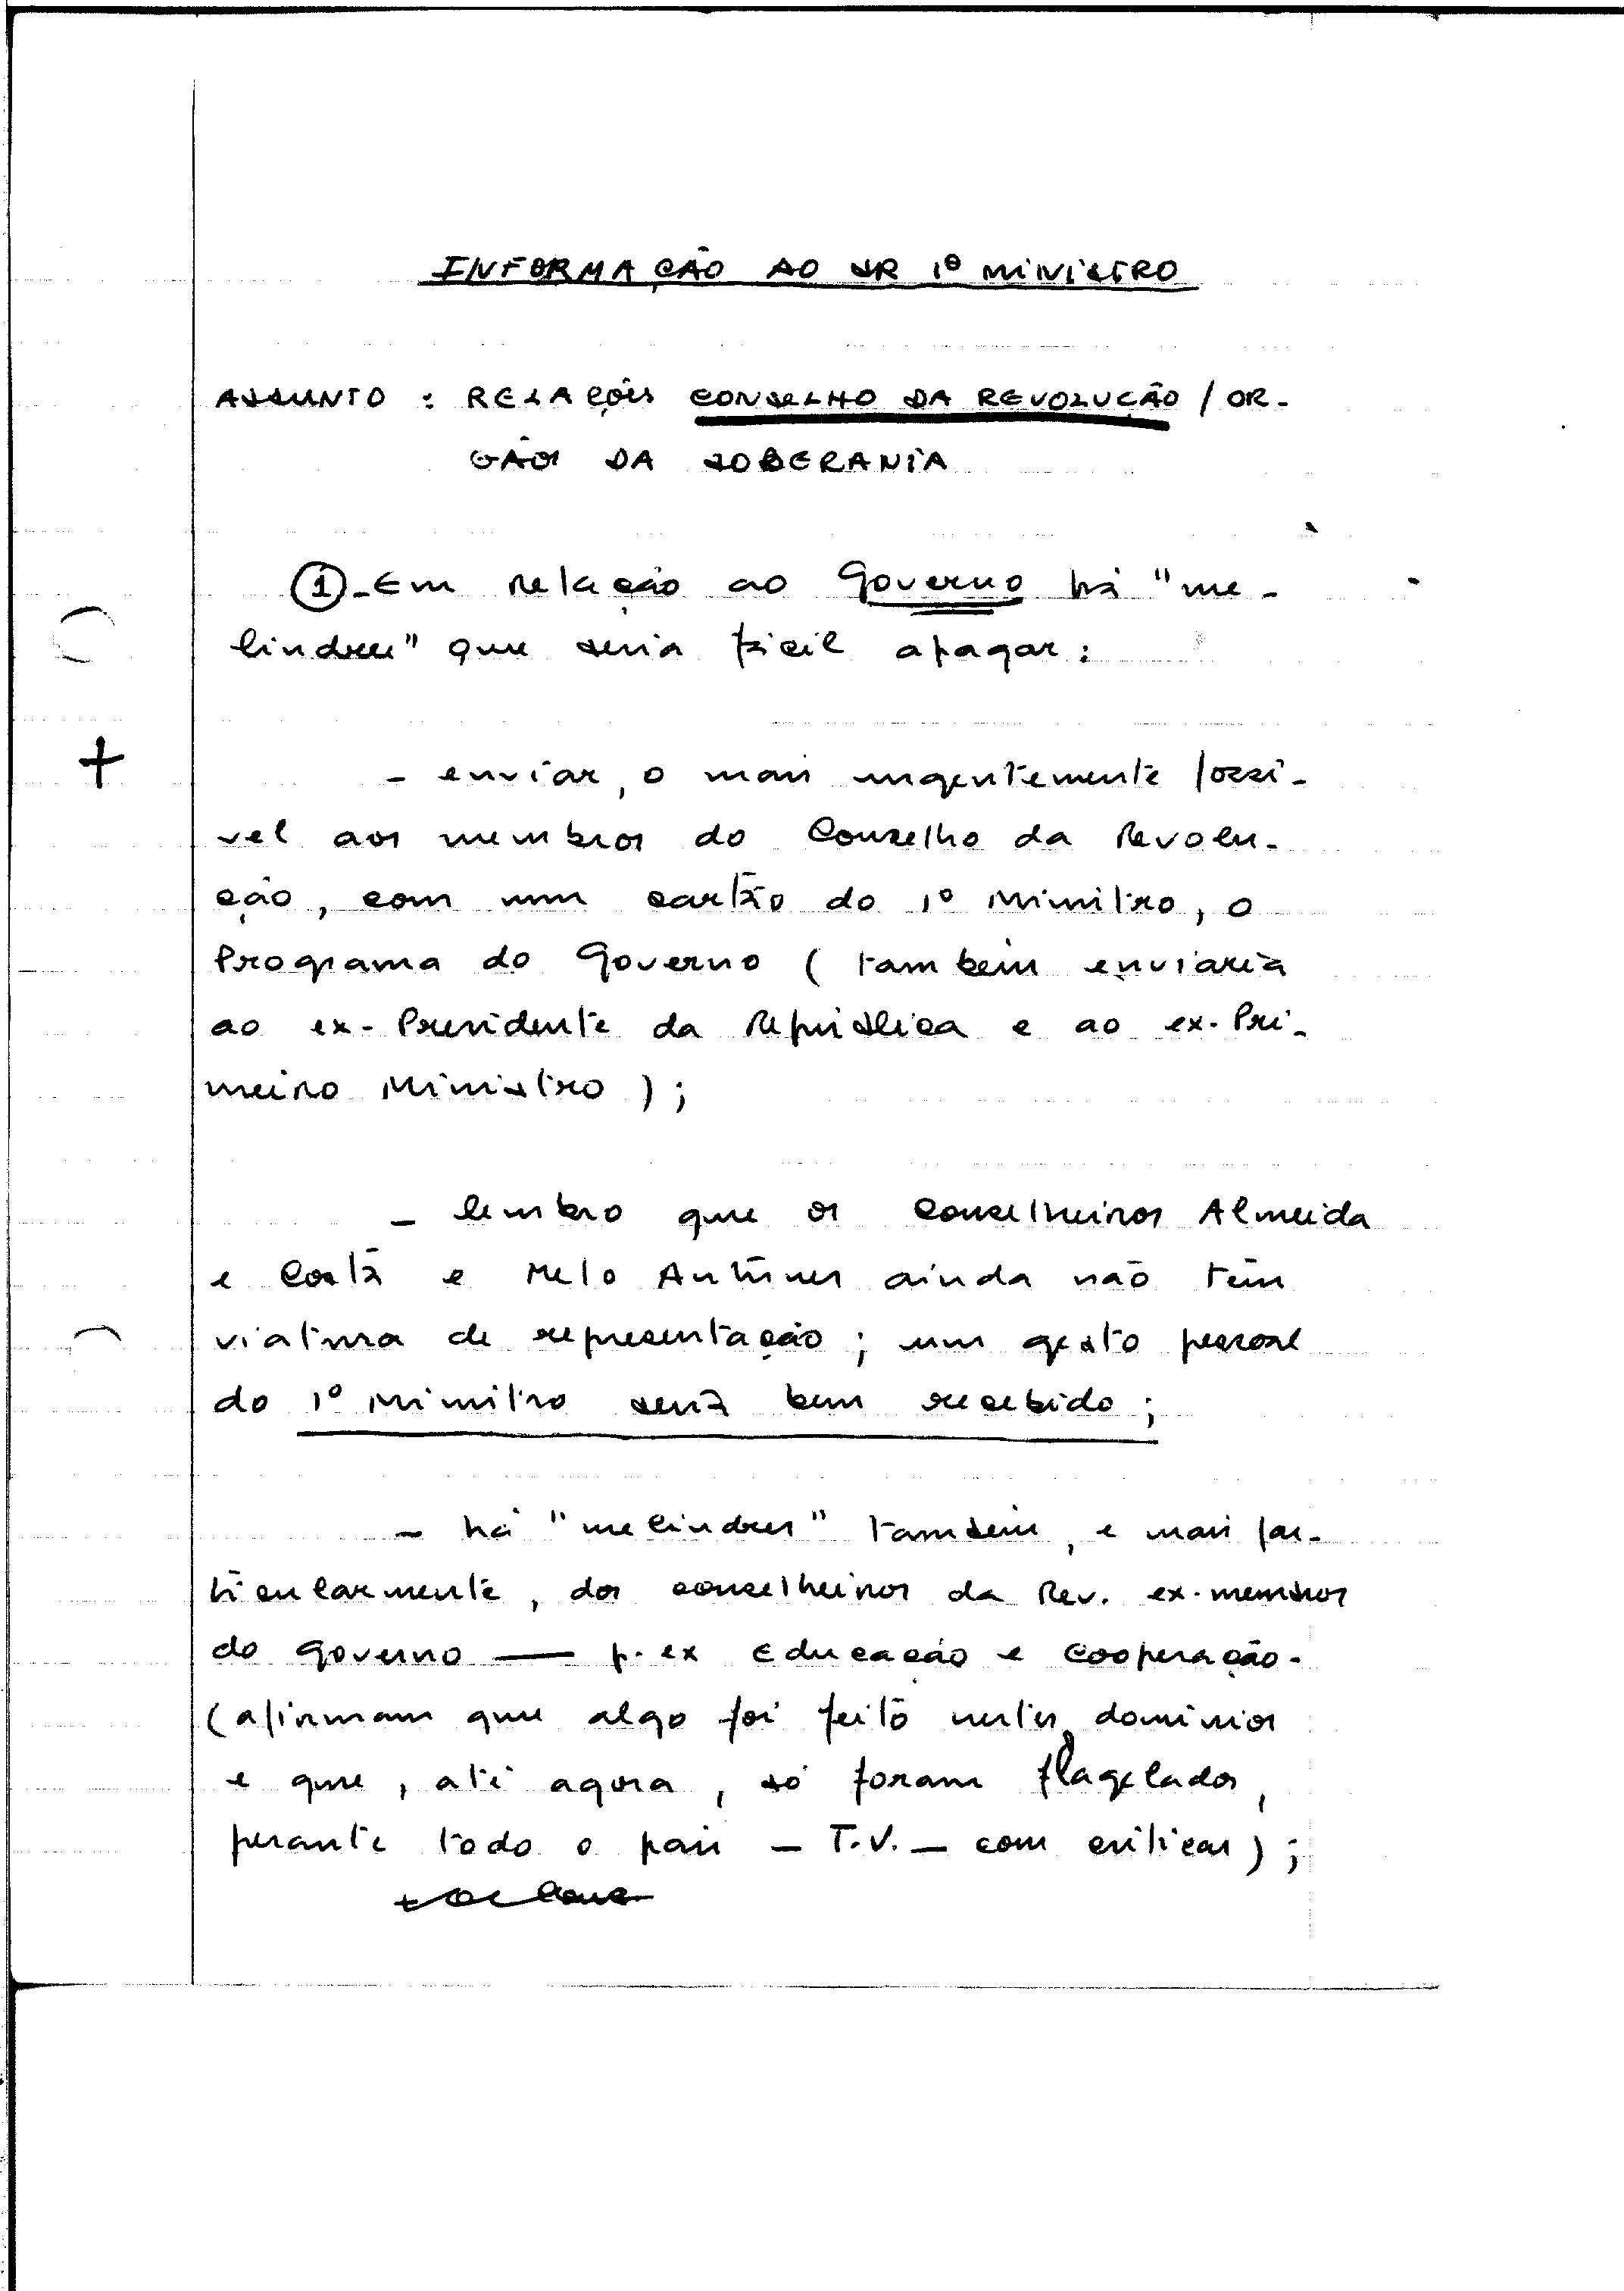 INFORMAÇÃO AO SR 1º MINISTRO
ASSUNTO : RELAÇÕES CONSELHO DA REVOLUÇÃO / OR-
GÃOS DA SOBERANIA
① - Em relação ao Governo há "me-
lindres" que seria fácil apagar :
- enviar, o mais urgentemente possi-
vel aos membros do Conselho da Revolu-
ção, com um cartão do 1º Ministro, o
Programa do Governo ( também enviaria
ao ex-Presidente da República e ao ex-Pri-
meiro Ministro ) ;
- lembro que os conselheiros Almeida
e Costa e Melo Antunes ainda não têm
viatura de representação ; um gesto pessoal
do 1º Ministro será bem recebido ;
- há "melindres" também, e mais par-
ticularmente, dos conselheiros da Rev. ex-membros
do governo — p. ex Educação e Cooperação -
(afirmam que algo foi feito nestes domínios
e que, até agora, só foram flagelados,
perante todo o país - T.V. - com críticas) ;